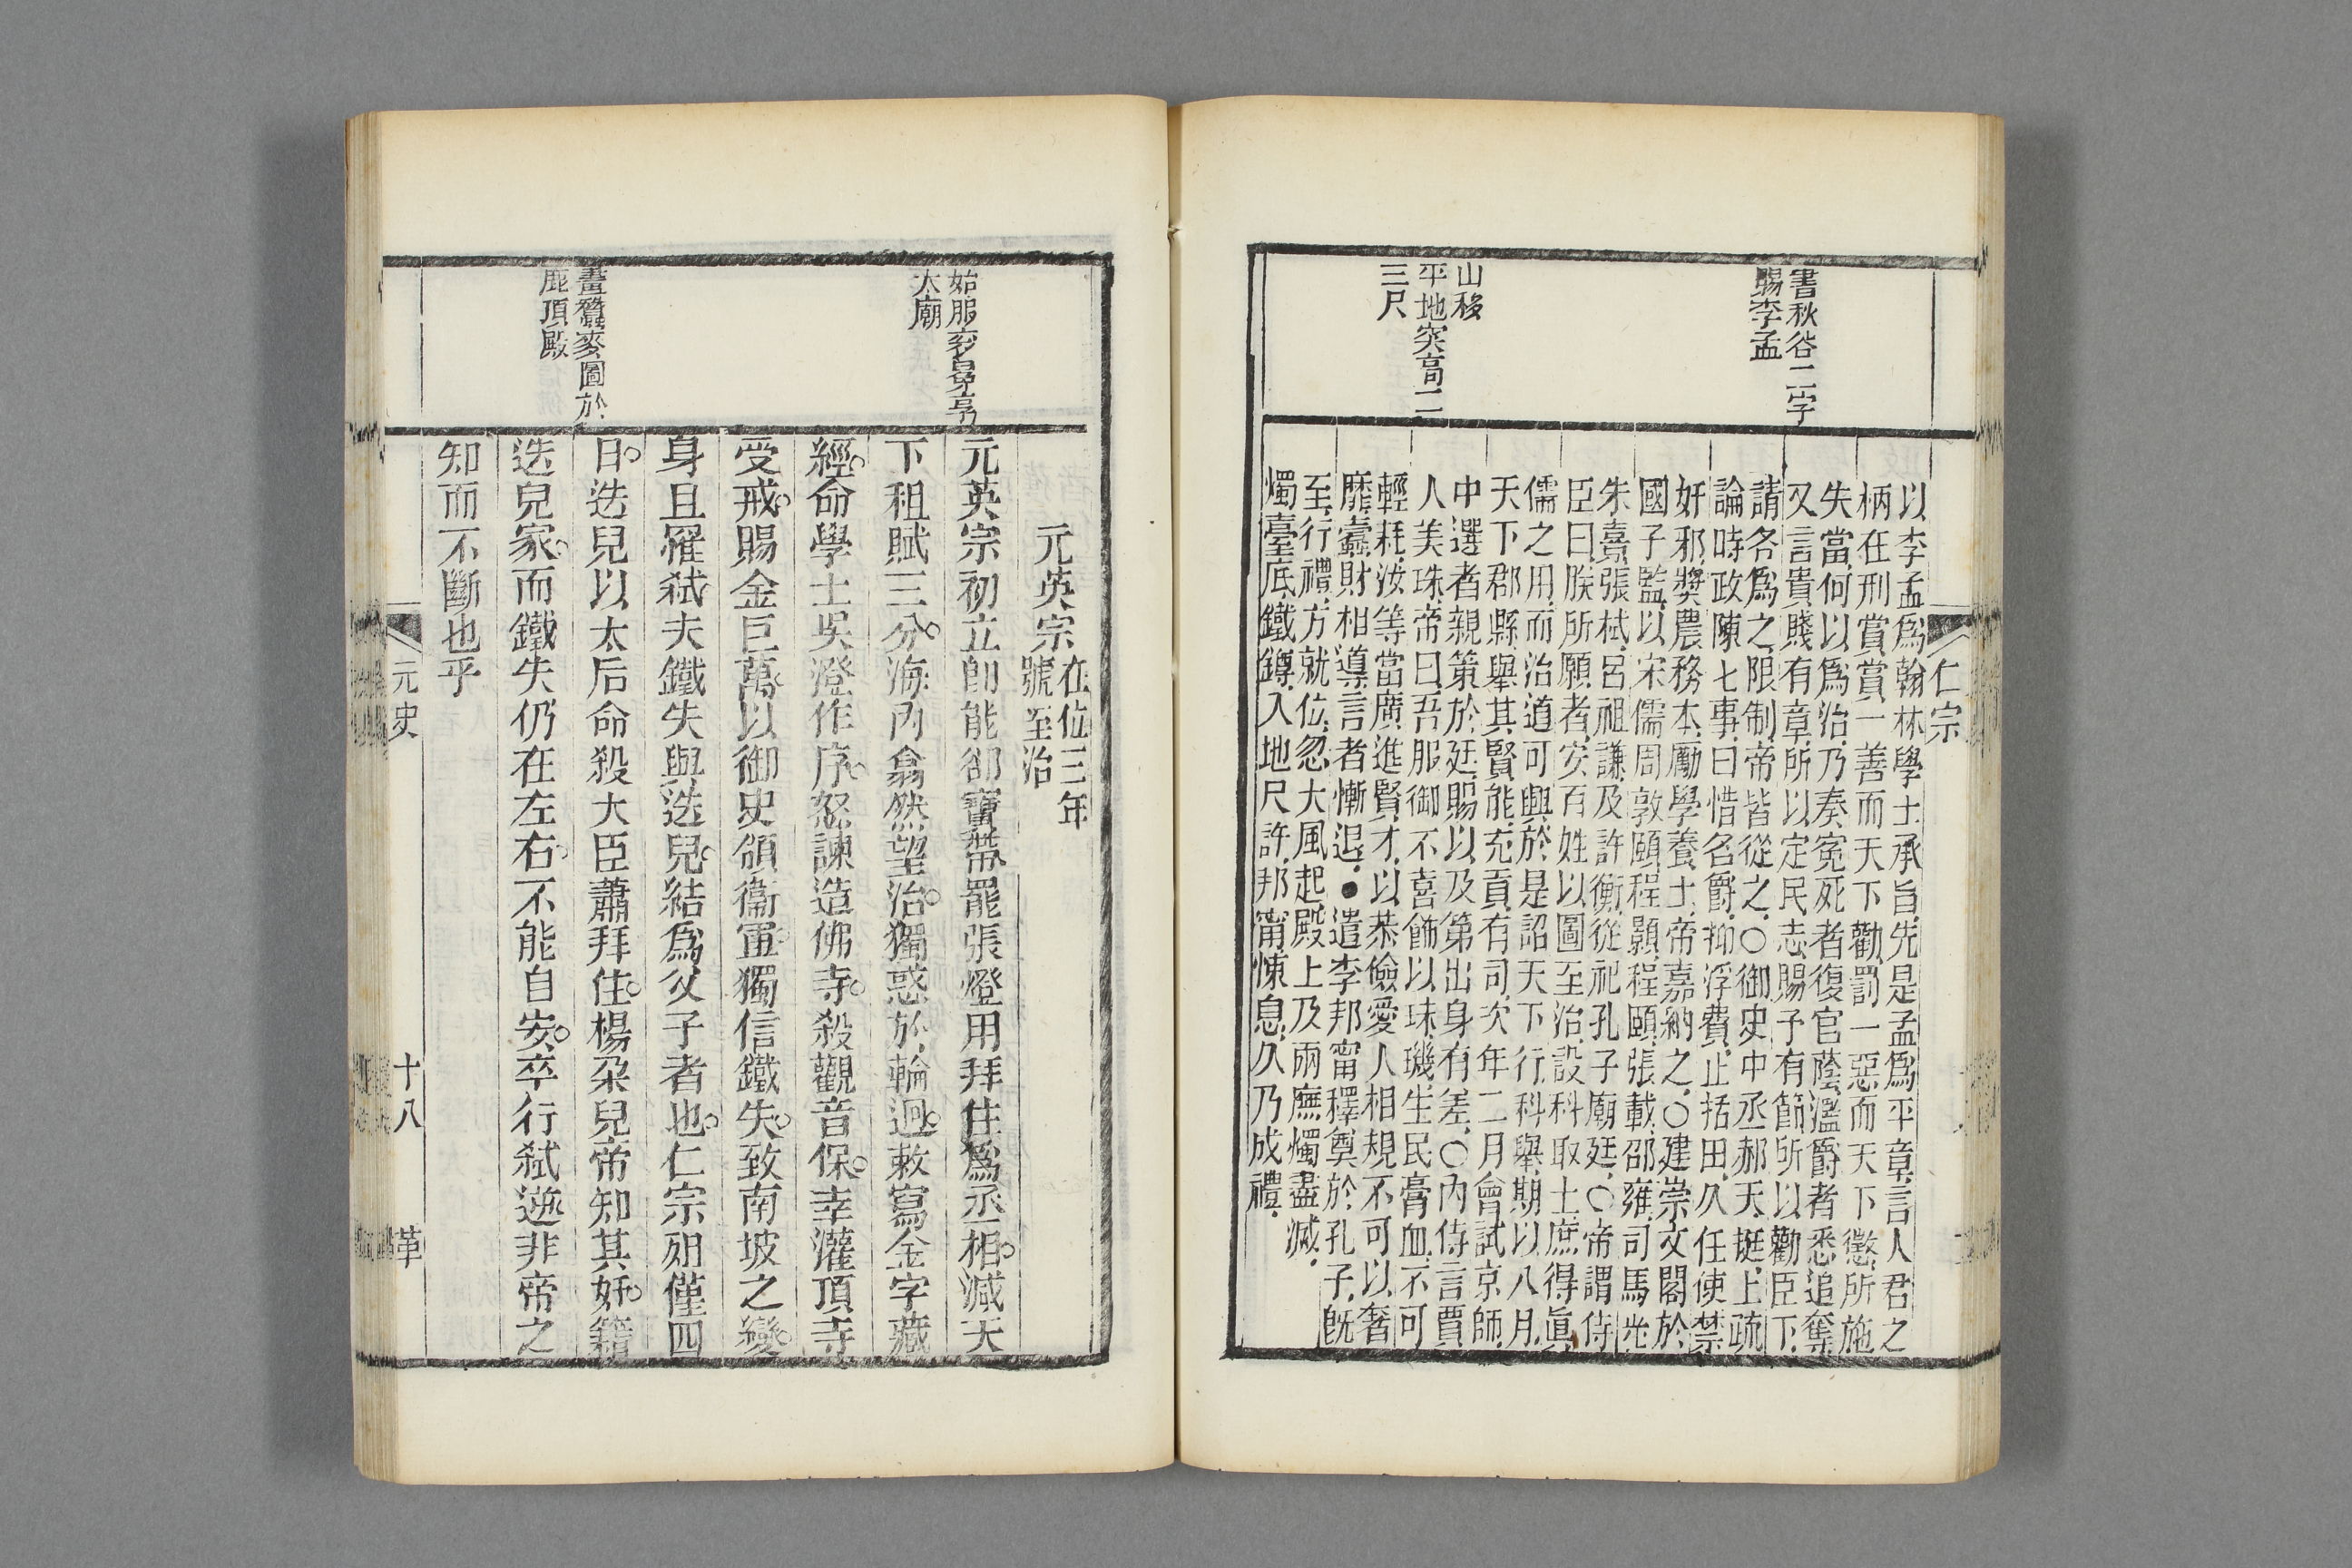 仁宗
書秋谷二字
賜李孟
山移
平地突高二
三尺
以李孟爲翰林學士承旨先是孟爲平章言人君之
柄在刑賞賞一善而天下勸罰一惡而天下懲所施
失當何以爲治乃奏寃死者復官蔭濫爵者悉追奪
又言貴賤有章所以定民志賜予有節所以勸臣下
請各爲之限制帝皆從之○御史中丞郝天挺上疏
論時政陳七事曰惜名爵抑浮費止括田久任使禁
奸邪奬農務本勵學養士帝嘉納之○建崇文閣於
國子監以宋儒周敦頤程顥程頤張載邵雍司馬光
朱熹張栻呂祖謙及許衡從祀孔子廟廷○帝謂侍
臣曰朕所願者安百姓以圖至治設科取士庶得眞
儒之用而治道可興於是詔天下行科舉期以八月
天下郡縣舉其賢能充貢有司次年二月會試京師
中選者親策於廷賜以及第出身有差○內侍言賈
人美珠帝曰吾服御不喜飾以珠璣生民膏血不可
輕耗汝等當廣進賢才以恭儉愛人相規不可以奢
靡蠹財相導言者慚退●遣李邦甯釋奠於孔子旣
至行禮方就位忽大風起殿上及兩廡燭盡滅
燭臺底鐵鐏入地尺許邦甯悚息久乃成禮
始服衮冕享
太廟
畫蠶麥圖於
鹿頂殿
元英宗在位三年
號至治
元英宗初立卽能卻寶帶罷張燈用拜住爲丞相減天
下租賦三分海內翕然望治獨惑於輪迴敕寫金字藏
經命學士吳澄作序怒諫造佛寺殺觀音保幸灌頂寺
受戒賜金巨萬以御史領衞軍獨信鐵失致南坡之變
身且罹弒夫鐵失與迭兒結爲父子者也仁宗朔僅四
日迭兒以太后命殺大臣蕭拜住楊朶兒帝知其奸籍
迭兒家而鐵失仍在左右不能自安卒行弒逆非帝之
知而不斷也乎
元史
十八
革